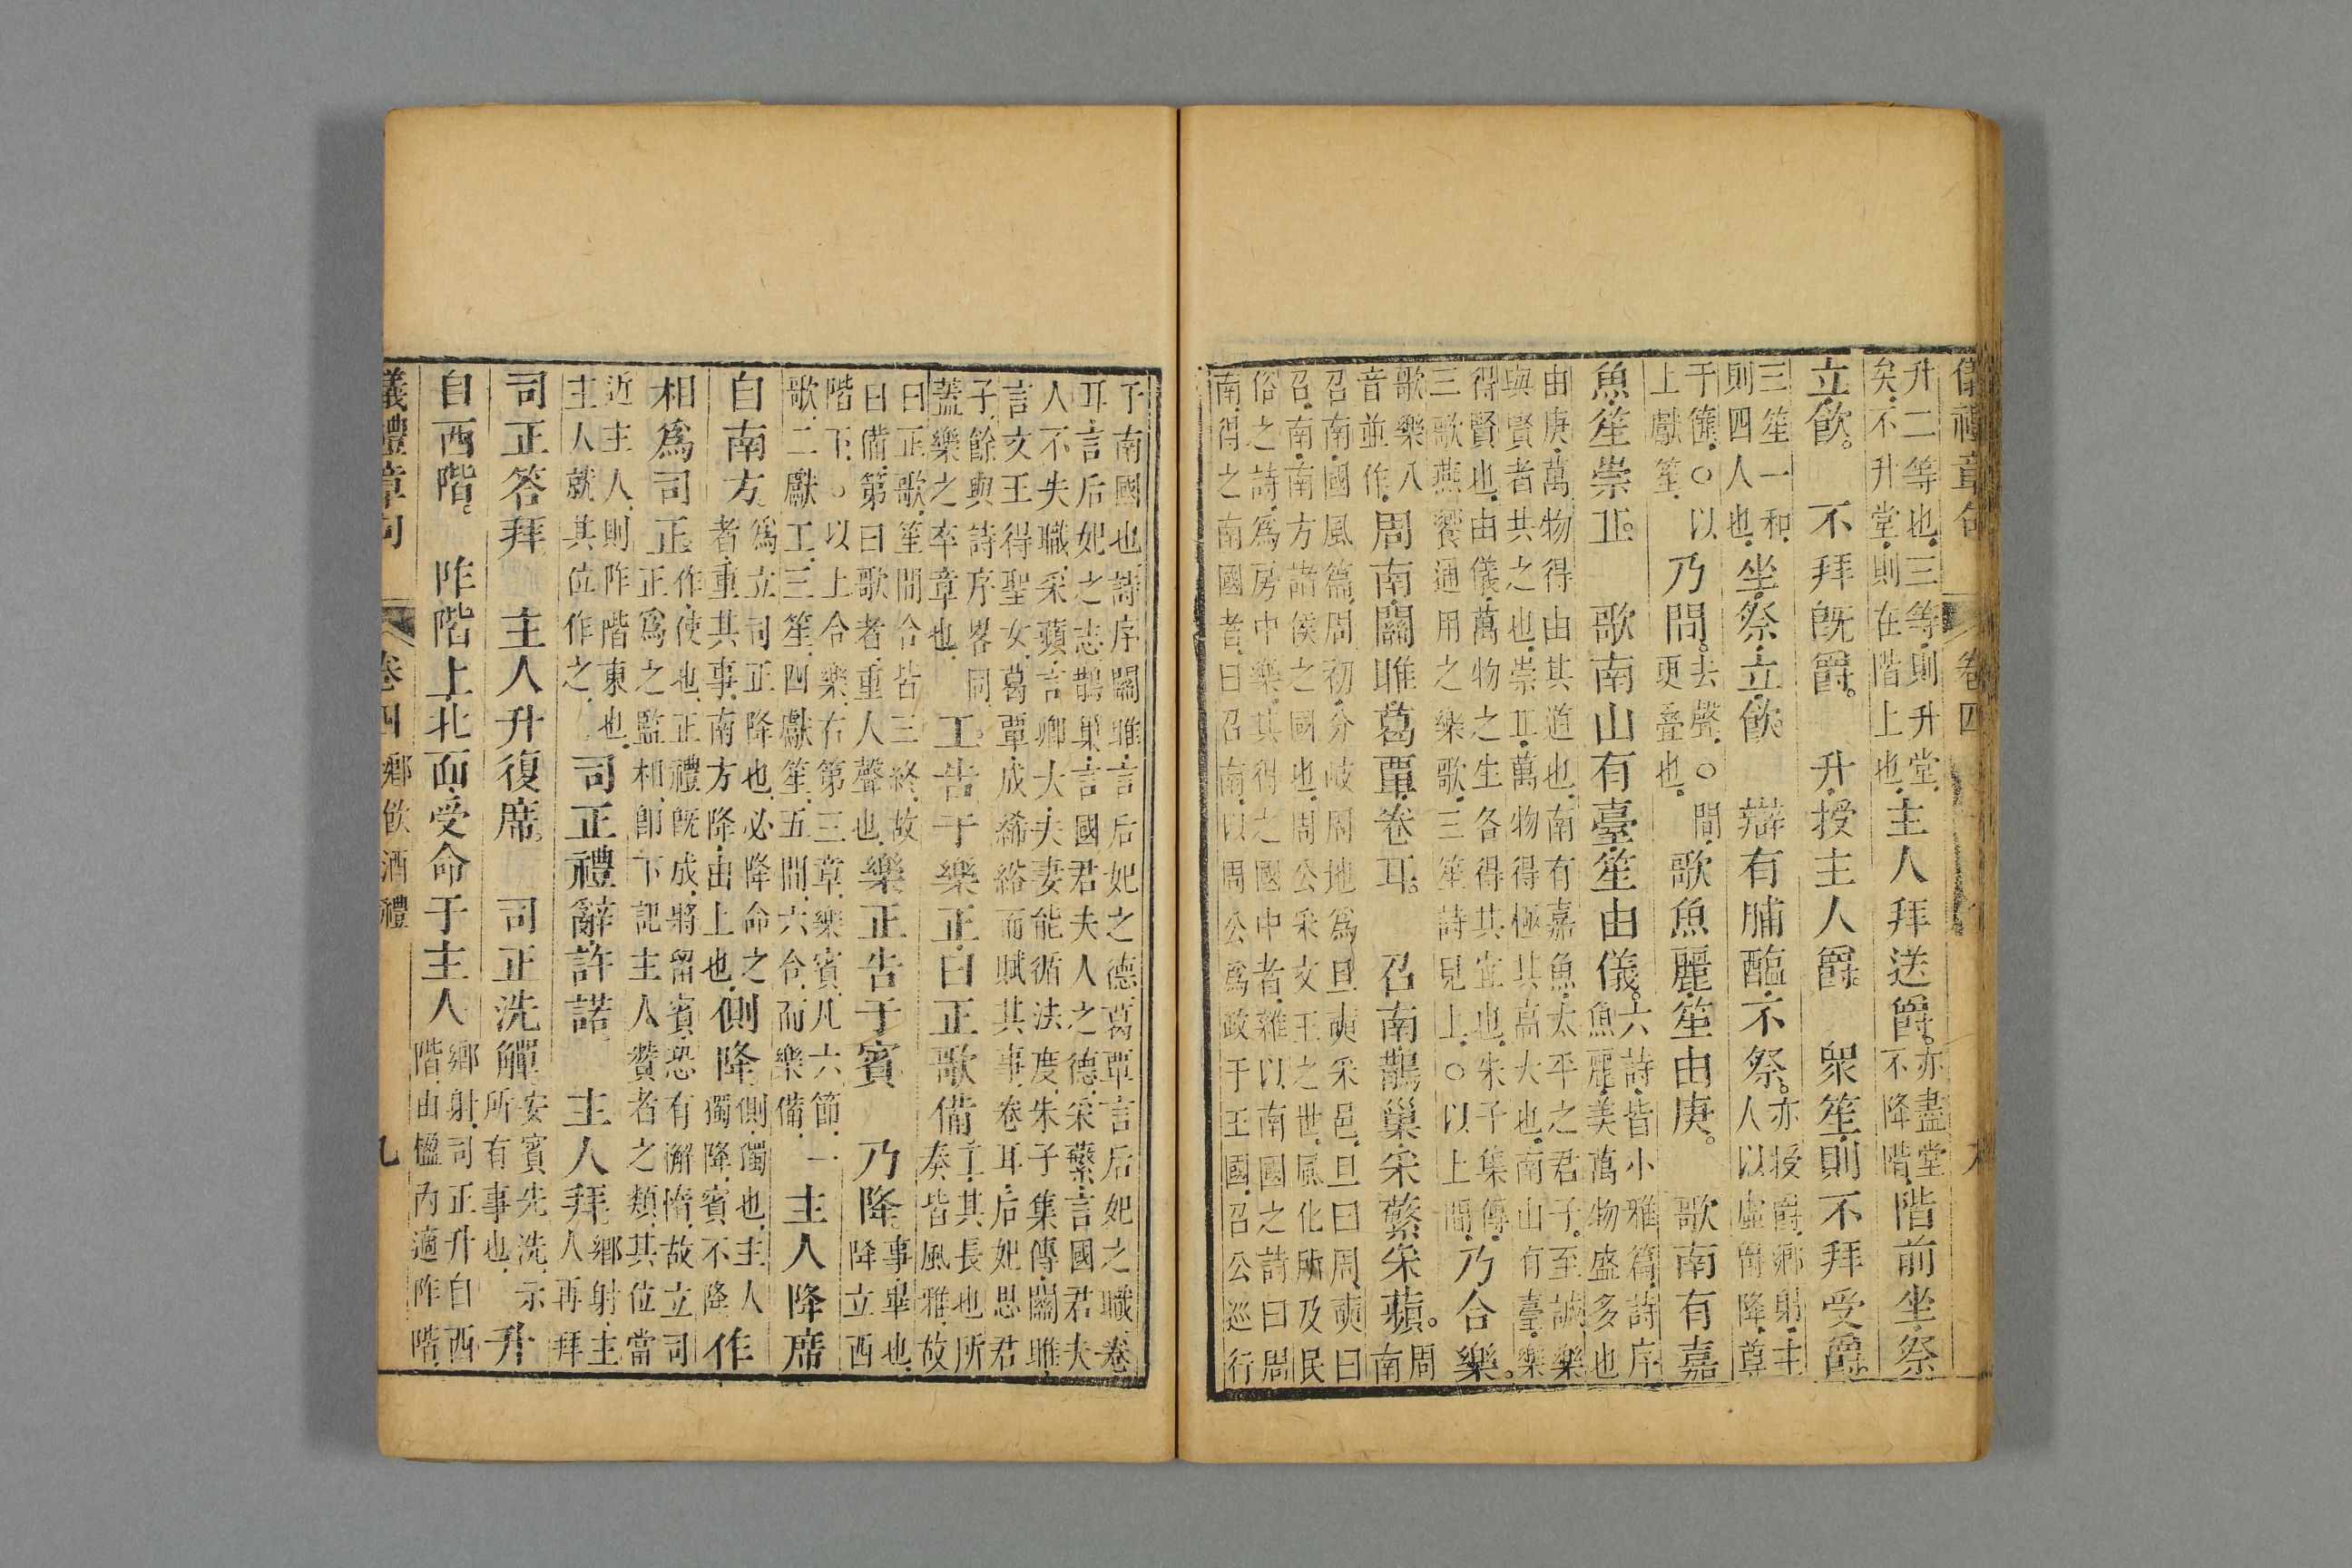 儀禮章句 卷四
升二等也三等則升堂
矣不升堂則在階上也
主人拜送爵
亦盡堂
不降階
階前坐祭
立飲 不拜既爵 升授主人爵 眾笙則不拜受爵
三笙一和
則四人也
坐祭立飲 辯有脯醢不祭
亦授爵鄉射主
人以虛爵降尊
于篚○以
上獻笙
乃間
去聲○間
更疊也
歌魚麗笙由庚 歌南有嘉
魚笙崇丘 歌南山有臺笙由儀
六詩皆小雅篇詩序
魚麗美萬物盛多也
由庚萬物得由其道也南有嘉魚太平之君子至誠樂
與賢者共之也崇丘萬物得極其高大也南山有臺樂
得賢也由儀萬物之生各得其宜也朱子集傳
三歌燕饗通用之樂歌三笙詩見上○以上間
乃合樂
歌樂八
音並作
周南關雎葛覃卷耳 召南鵲巢采蘩采蘋
周
南
召南國風篇周初分岐周地為旦奭采邑旦曰周奭曰
召南南方諸侯之國也周公采文王之世風化所及民
俗之詩為房中樂其得之國中者雜以南國之詩曰周
南得之南國者曰召南以周公為政于王國召公巡行
于南國也詩序關雎言后妃之德葛覃言后妃之職卷
耳言后妃之志鵲巢言國君夫人之德采蘩言國君夫
人不失職采蘋言卿大夫妻能循法度朱子集傳關雎
言文王得聖女葛覃成絺綌而賦其事卷耳后妃思君
子餘與詩序畧同
蓋樂之卒章也
工告于樂正曰正歌備
工其長也所
奏皆風雅故
曰正歌笙間合皆三終故
曰備第曰歌者重人聲也
樂正告于賓 乃降
事畢也
降立西
階下○以上合樂右第三章樂賓凡六節一
歌二獻工三笙四獻笙五間六合而樂備
主人降席
自南方
為立司正降也必降命之
者重其事南方降由上也
側降
側獨也主人
獨降賓不降
作
相為司正
作使也正禮既成將留賓恐有懈惰故立司
正為之監相即下記主人贊者之類其位當
近主人則阼階東也
主人就其位作之
司正禮辭許諾 主人拜
鄉射主
人再拜
司正答拜 主人升復席 司正洗觶
安賓先洗示
所有事也
升
自西階 阼階上北面受命于主人
鄉射司正升自西
階由楹內適阼階
儀禮章句 卷四 鄉飲酒禮 九